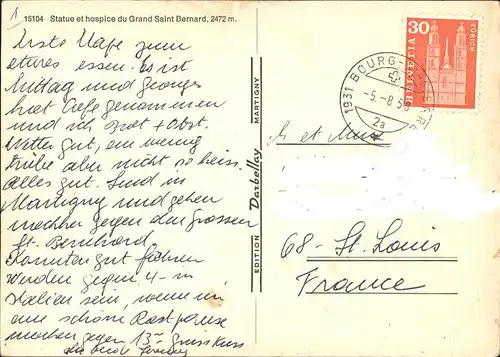 1
15104 Statue et hospice du Grand Saint Bernard, 2472 m.
Erste Kafe zum
etwas essen. Es ist
Mittag und Georges
hat Cafe genommen
und ich Brot + Obst.
Wetter gut, ein wenig
trübe aber nicht so heiss.
Alles gut. Sind in
Martigny und gehen
nachher gegen den grossen
St. Bernhard,
Konnten gut fahren
werden gegen 4 in
Italien sein, wenn wir
eine schöne Rastpause
machen gegen 13 Gruss Kuss
EDITION Darbellay MARTIGNY
30
HELVETIA
ZÜRICH
1931 BOURG-
-5.-8.5
2a
M et Mme
68-St. Louis
France